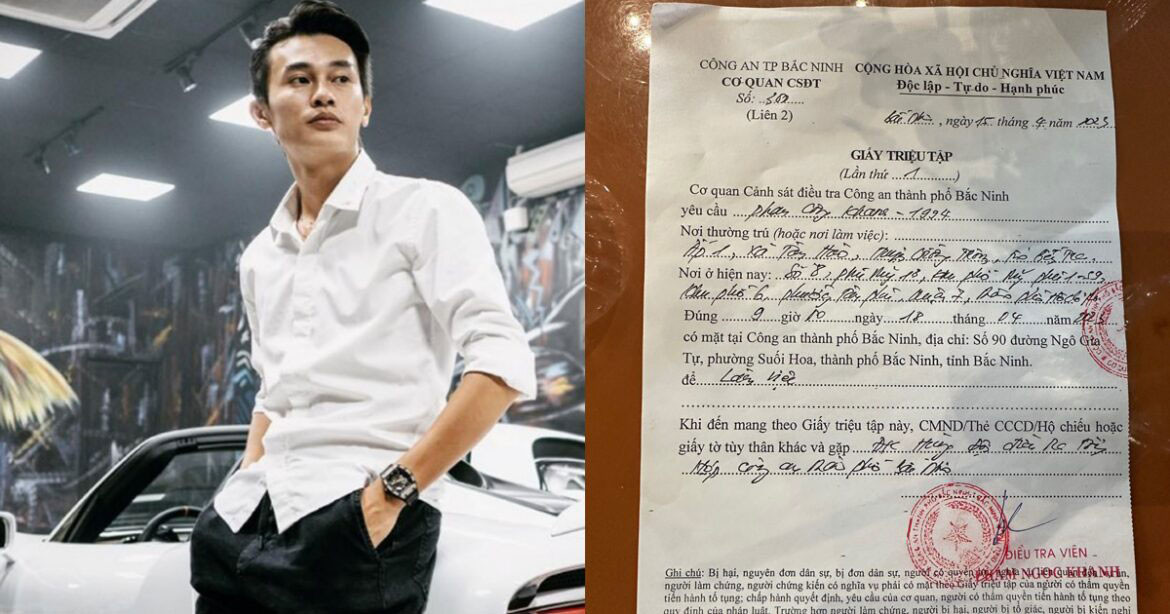 CÔNG AN TP BẮC NINH
CƠ QUAN CSĐT
Số: ...........
(Liên 2)
CỘNG HÒA XÃ HỘI CHỦ NGHĨA VIỆT NAM
Độc lập - Tự do - Hạnh phúc
, ngày 15 tháng 4 năm 2023
GIẤY TRIỆU TẬP
(Lần thứ ...1...........)
Cơ quan Cảnh sát điều tra Công an thành phố Bắc Ninh
yêu cầu .... Phan Công Khanh - 1994
Nơi thường trú (hoặc nơi làm việc):
Ấp 1, xã
Nơi ở hiện nay: Số 8,
Khu phố 6, phường Tân Phú, quận 7,
Đúng ......9...... giờ 00 ngày ....18.... tháng ....04.... năm 2023
có mặt tại Công an thành phố Bắc Ninh, địa chỉ: Số 90 đường Ngô Gia
Tự, phường Suối Hoa, thành phố Bắc Ninh, tỉnh Bắc Ninh.
để.....Làm việc
Khi đến mang theo Giấy triệu tập này, CMND/Thẻ CCCD/Hộ chiếu hoặc
giấy tờ tùy thân khác và gặp
công an thành phố Bắc Ninh
ĐIỀU TRA VIÊN
PHẠM NGỌC KHANH
Ghi chú: Bị hại, nguyên đơn dân sự, bị đơn dân sự, người có quyền lợi nghĩa
người làm chứng, người chứng kiến có nghĩa vụ phải có mặt theo Giấy triệu tập của người có thẩm quyền
tiến hành tố tụng; chấp hành quyết định, yêu cầu của cơ quan, người có thẩm quyền tiến hành tố tụng theo
quy định của pháp luật. Trường hợp người làm chứng, người bị hại, người bị tố giác, người bị kiến nghị